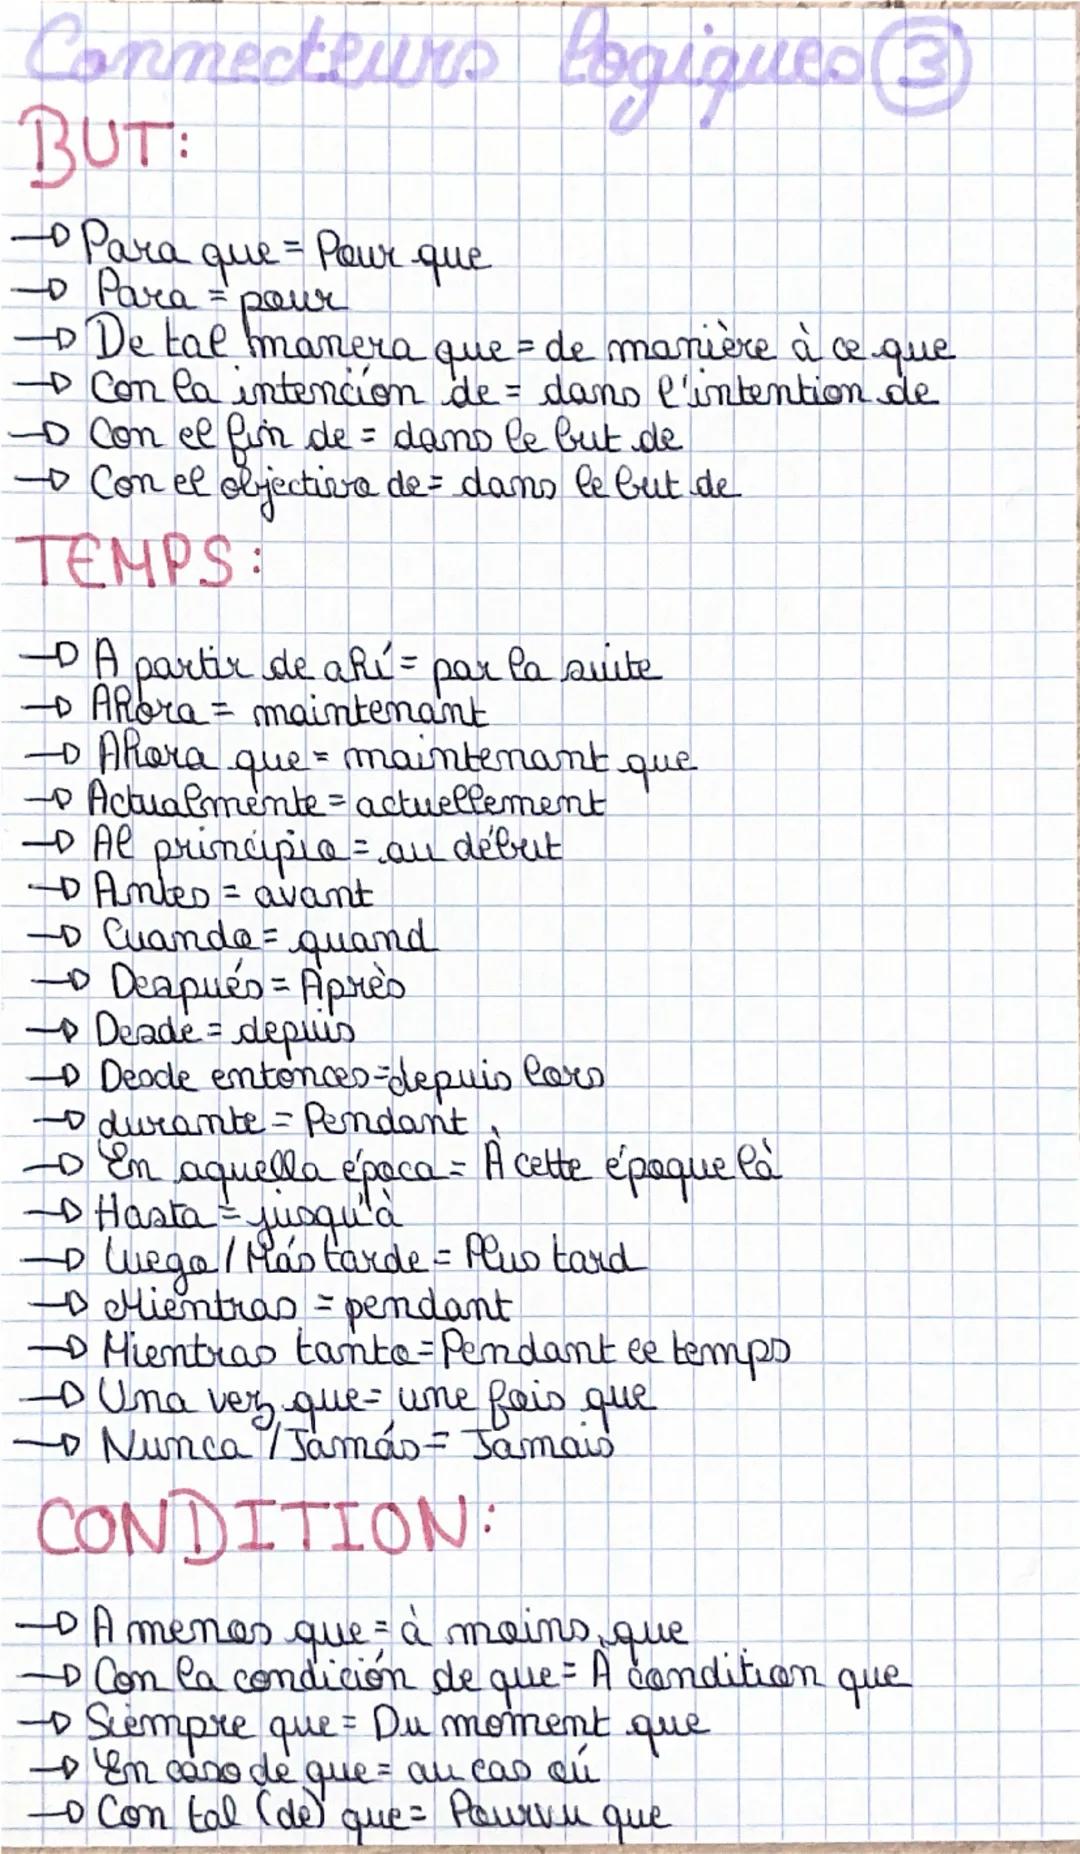 Connecteurs logiques ③
BUT:
→ Para que = Pour que
→ Para = pour
→ De tal manera que = de manière à ce que
→ Con la intención de = dans l'intention de
→ Con el fin de = dans le but de
→ Con el objectivo de = dans le but de
TEMPS:
→ A partir de ahí = par la suite
→ Ahora = maintenant
→ Ahora que = maintenant que
→ Actualmente = actuellement
→ Al principio = au début
→ Antes = avant
→ Cuando = quand
→ Después = Après
→ Desde = depuis
→ Desde entonces = depuis lors
→ durante = Pendant
→ En aquella época = À cette époque là
→ Hasta = jusqu'à
→ Luego / Más tarde = Plus tard
→ Mientras = pendant
→ Mientras tanto = Pendant ce temps
→ Una vez que = une fois que
→ Nunca / Jamás = Jamais
CONDITION:
→ A menos que = à moins que
→ Con la condición de que = À condition que
→ Siempre que = Du moment que
→ En caso de que = au cas où
→ Con tal (de) que = Pourvu que